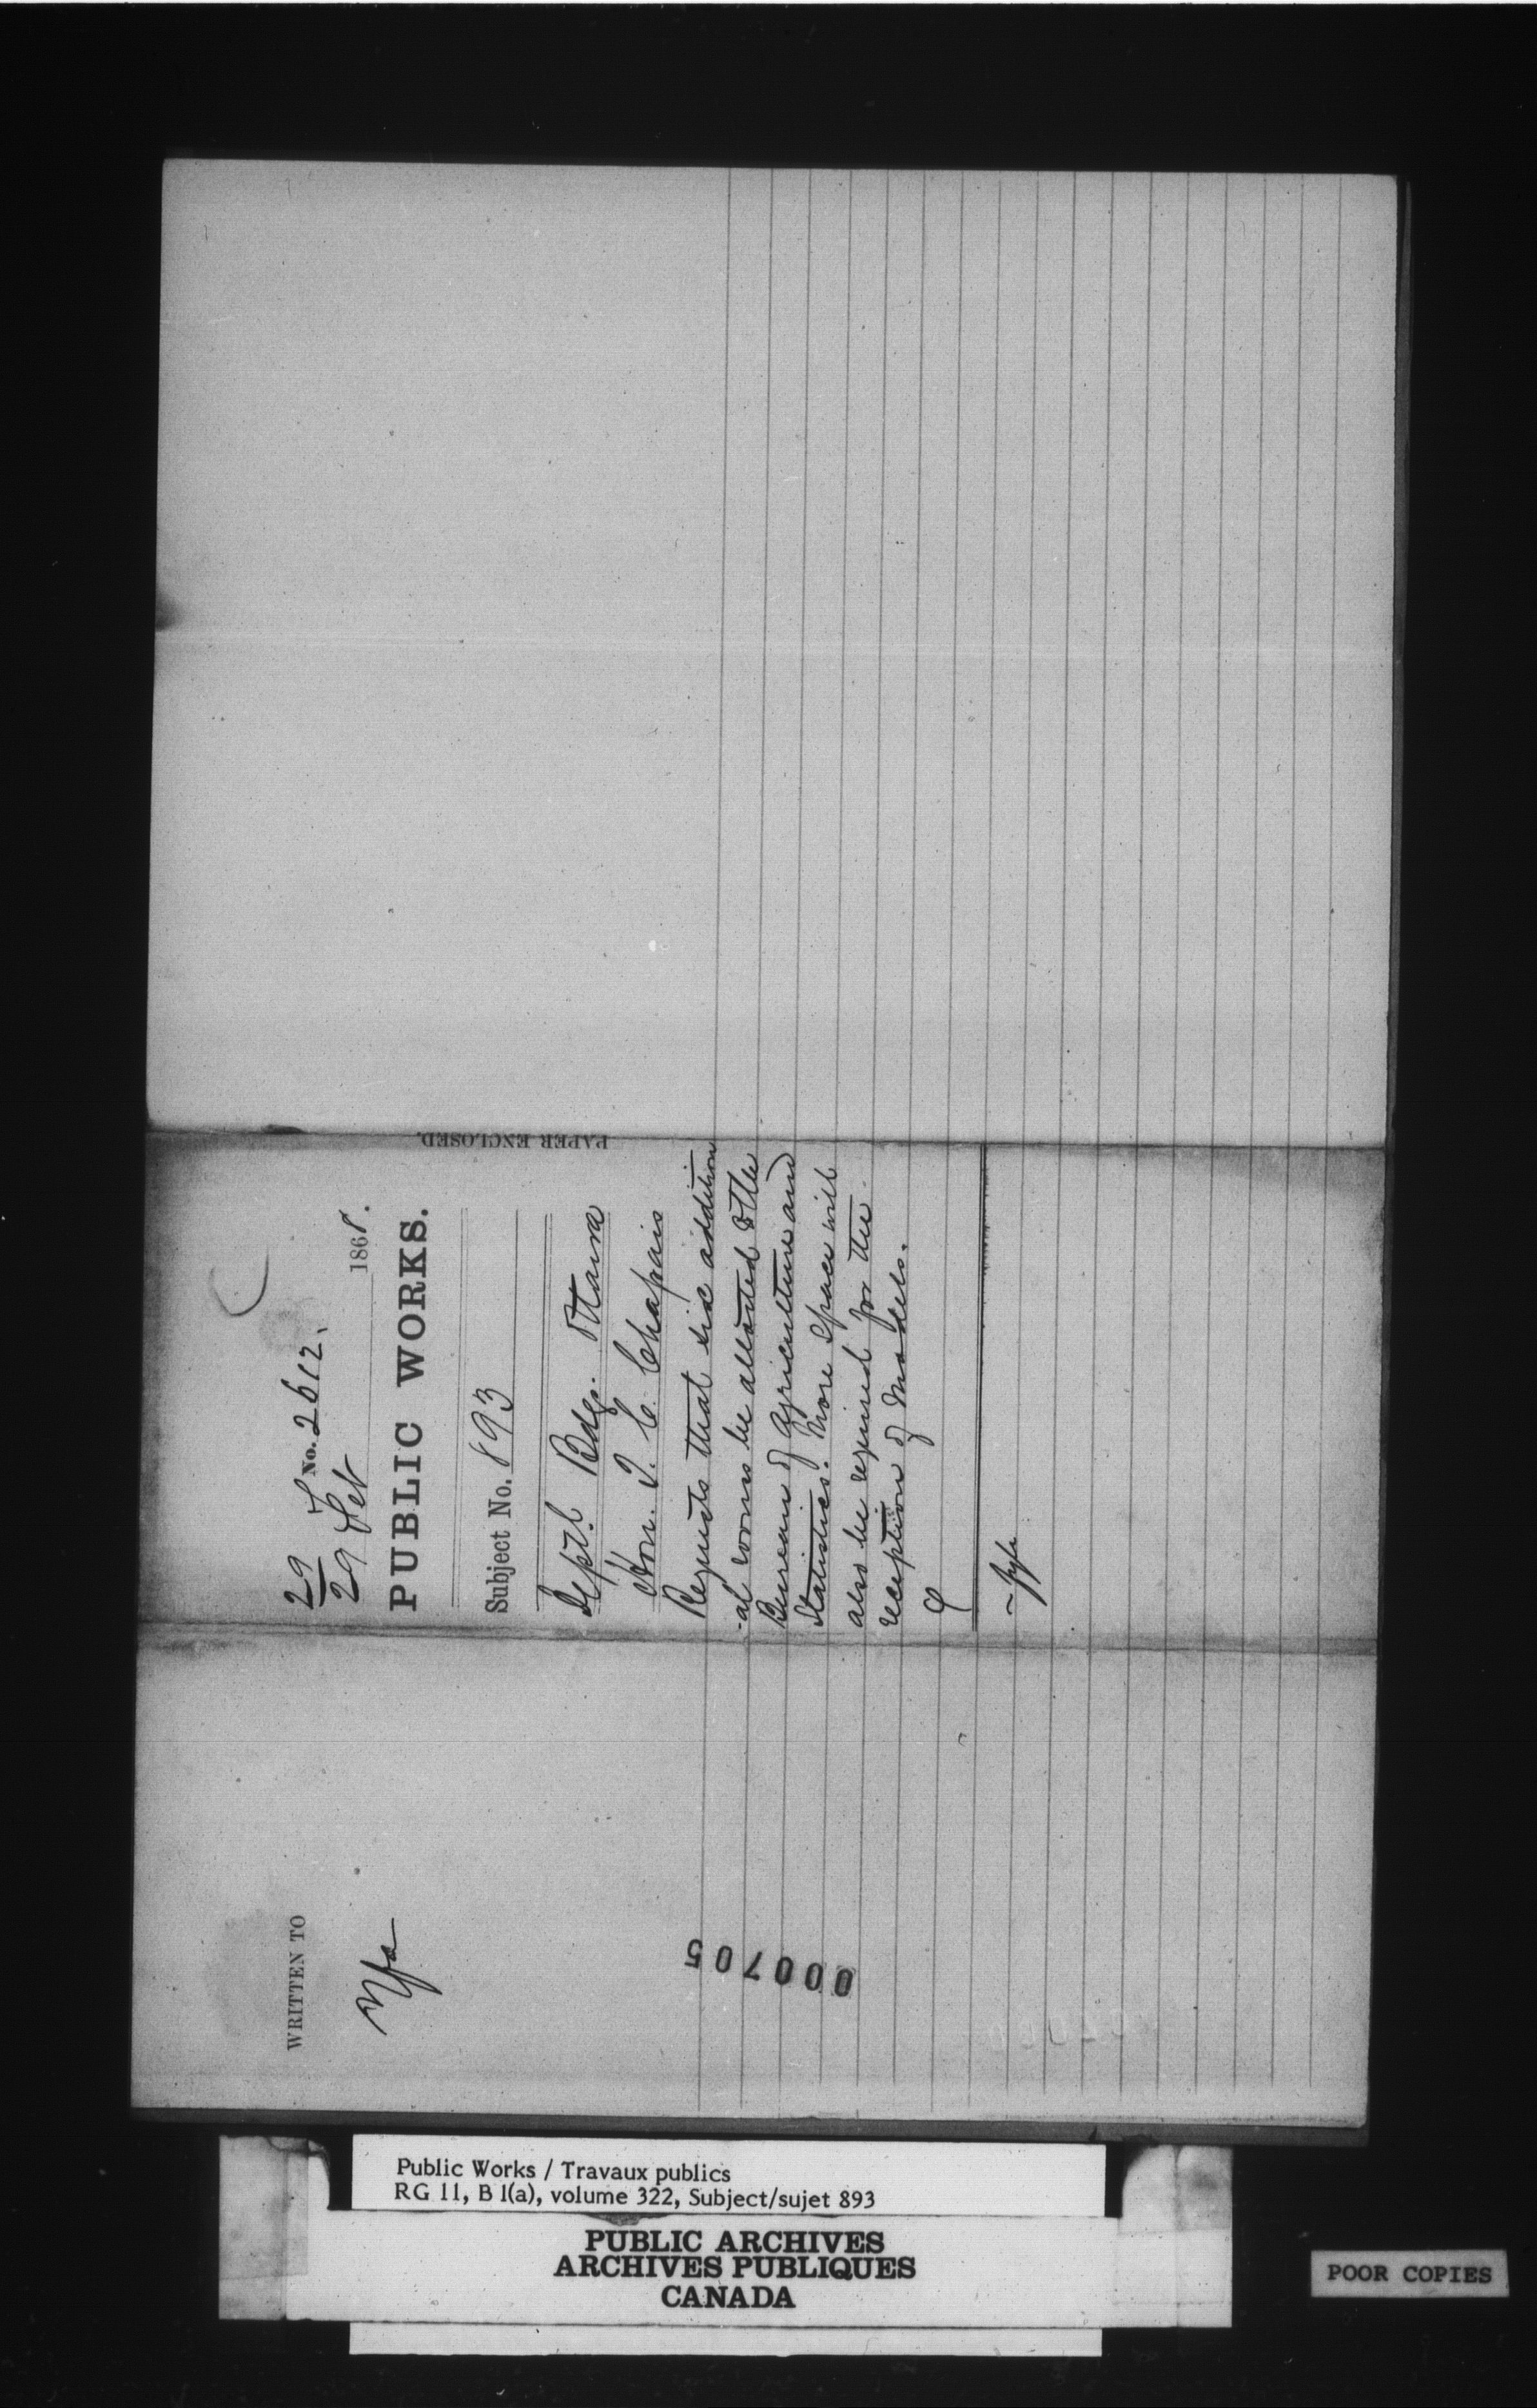 29
29 Feb
No. 2612.
1868.
PUBLIC WORKS.
Subject No. 893
Deptl Bdgs. Ottawa
Hon. J. C. Chapais
Requests that six addition
-al rooms be allotted to the
Bureau of Agriculture and
Statistics. More space will
also be required for the
reception of Models.
PAPER ENCLOSED.
WRITTEN TO
000705
Public Works / Travaux publics
RG 11, B 1(a), volume 322, Subject/sujet 893
PUBLIC ARCHIVES
ARCHIVES PUBLIQUES
CANADA
POOR COPIES